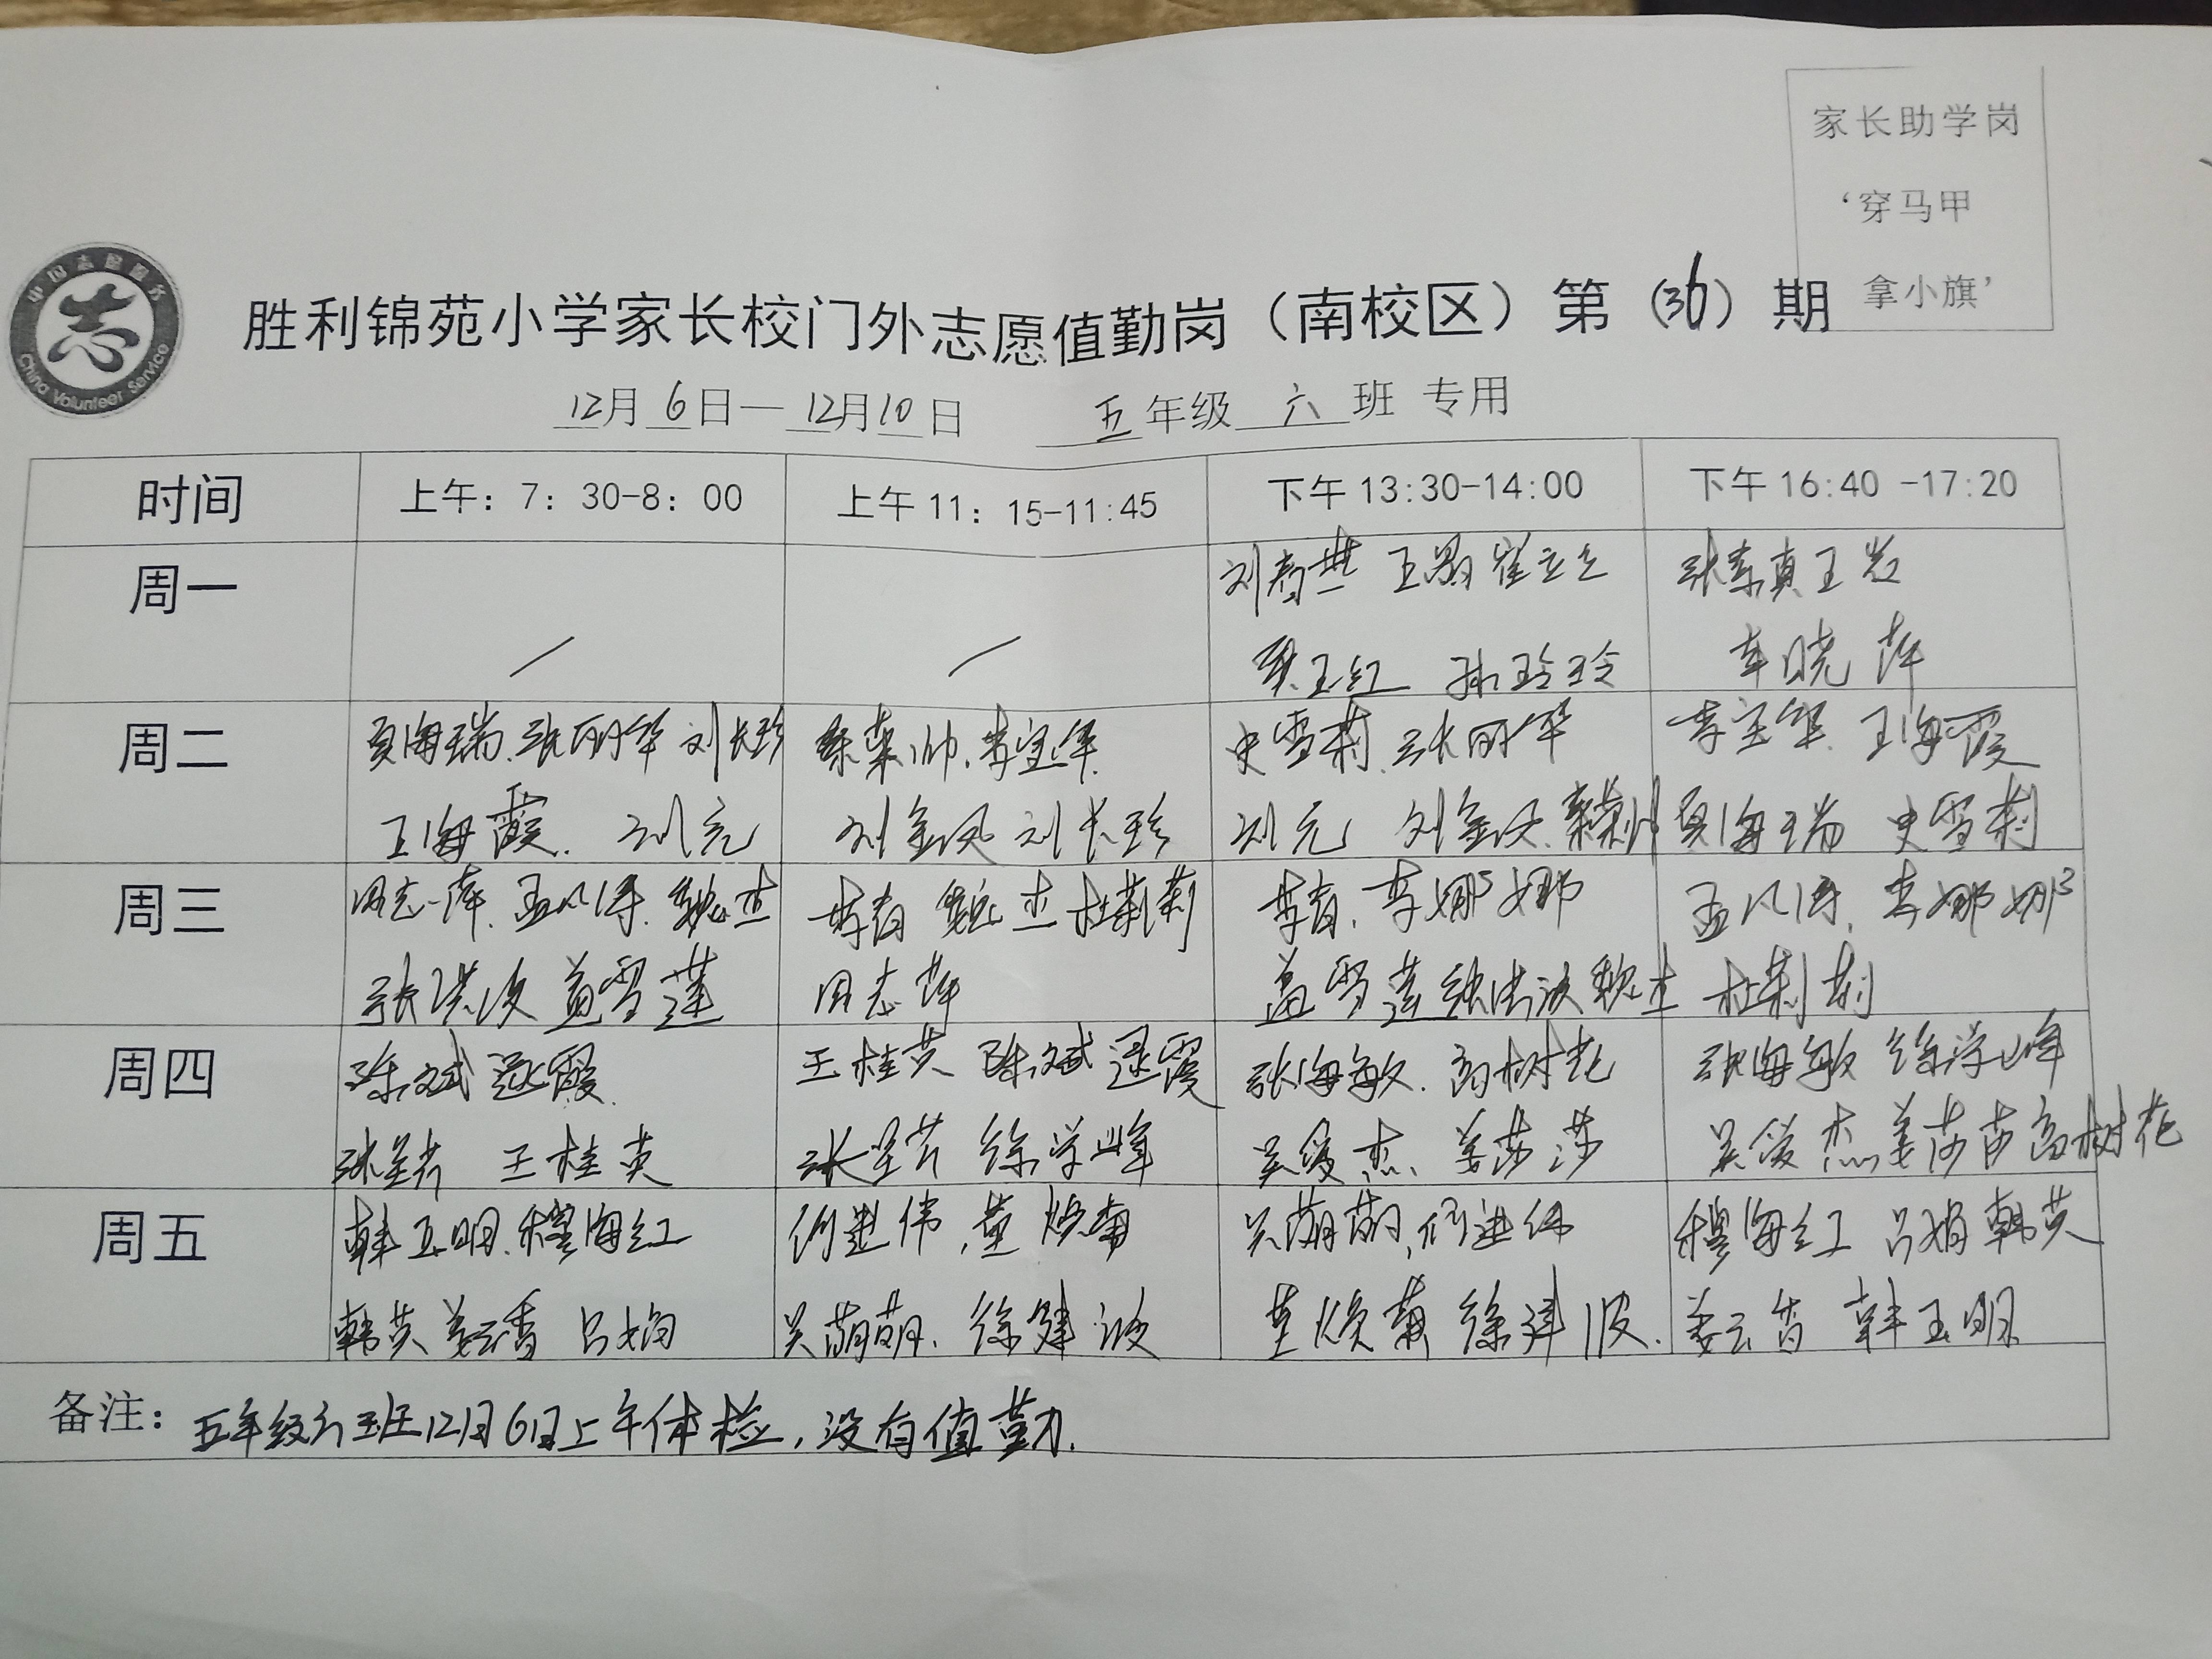 家长助学岗
‘穿马甲
拿小旗’
中国志愿服务
志
China Volunteer Service
胜利锦苑小学家长校门外志愿值勤岗（南校区）第（36）期
12月 6日—12月10日 五年级 六 班 专用
时间 上午：7：30-8：00 上午 11：15-11:45 下午 13:30-14:00 下午 16:40 -17:20
周一 / / 崔立立 王岩
孙玲玲 车晓萍
周二 夏海瑞、张丽华 刘长珍 李宝华 史雪莉、张丽华 李宝华、王海霞
王海霞、刘元 刘金凤 刘长珍 刘元 刘金凤、 夏海瑞 史雪莉
周三 周志萍、孟凡涛、魏杰 李春 魏杰 杜莉莉 李春、李娜娜 孟凡涛、李娜娜
张洪波 盖雪莲 周志萍 盖雪莲 张洪波 魏杰 杜莉莉
周四 陈斌 逯霞 王桂英 陈斌 逯霞 张海敏、高树花 张海敏 徐学峰
王桂英 徐学峰 吴爱杰、姜莎莎 吴爱杰 姜莎莎 高树花
周五 韩玉明、穆海红 何进伟、董焕菊 吴萌萌、何进伟 穆海红 吕娟 韩英
韩英 姜云香 吕娟 吴萌萌、徐建波 董焕菊 徐建波、 姜云香 韩玉明
备注：五年级六班12月6日上午体检，没有值勤.